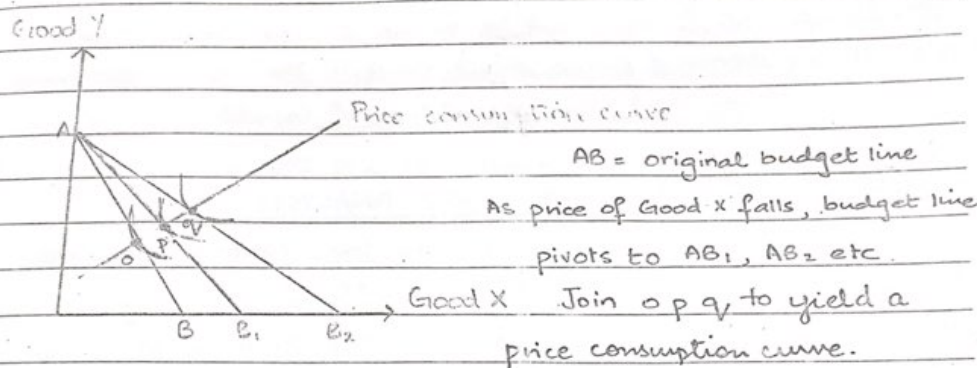 Good Y
Price consumption curve
A
AB = original budget line
As price of Good X falls, budget line
pivots to AB₁, AB₂ etc.
o p q
Good X
Join o p q, to yield a
B B₁ B₂
price consumption curve.